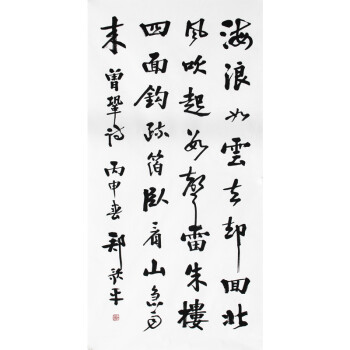 海浪如雲去却回北
風吹起数聲雷朱樓
四面鈎疏箔臥看山急雨
来 曾鞏詩 丙申春 鄭 平